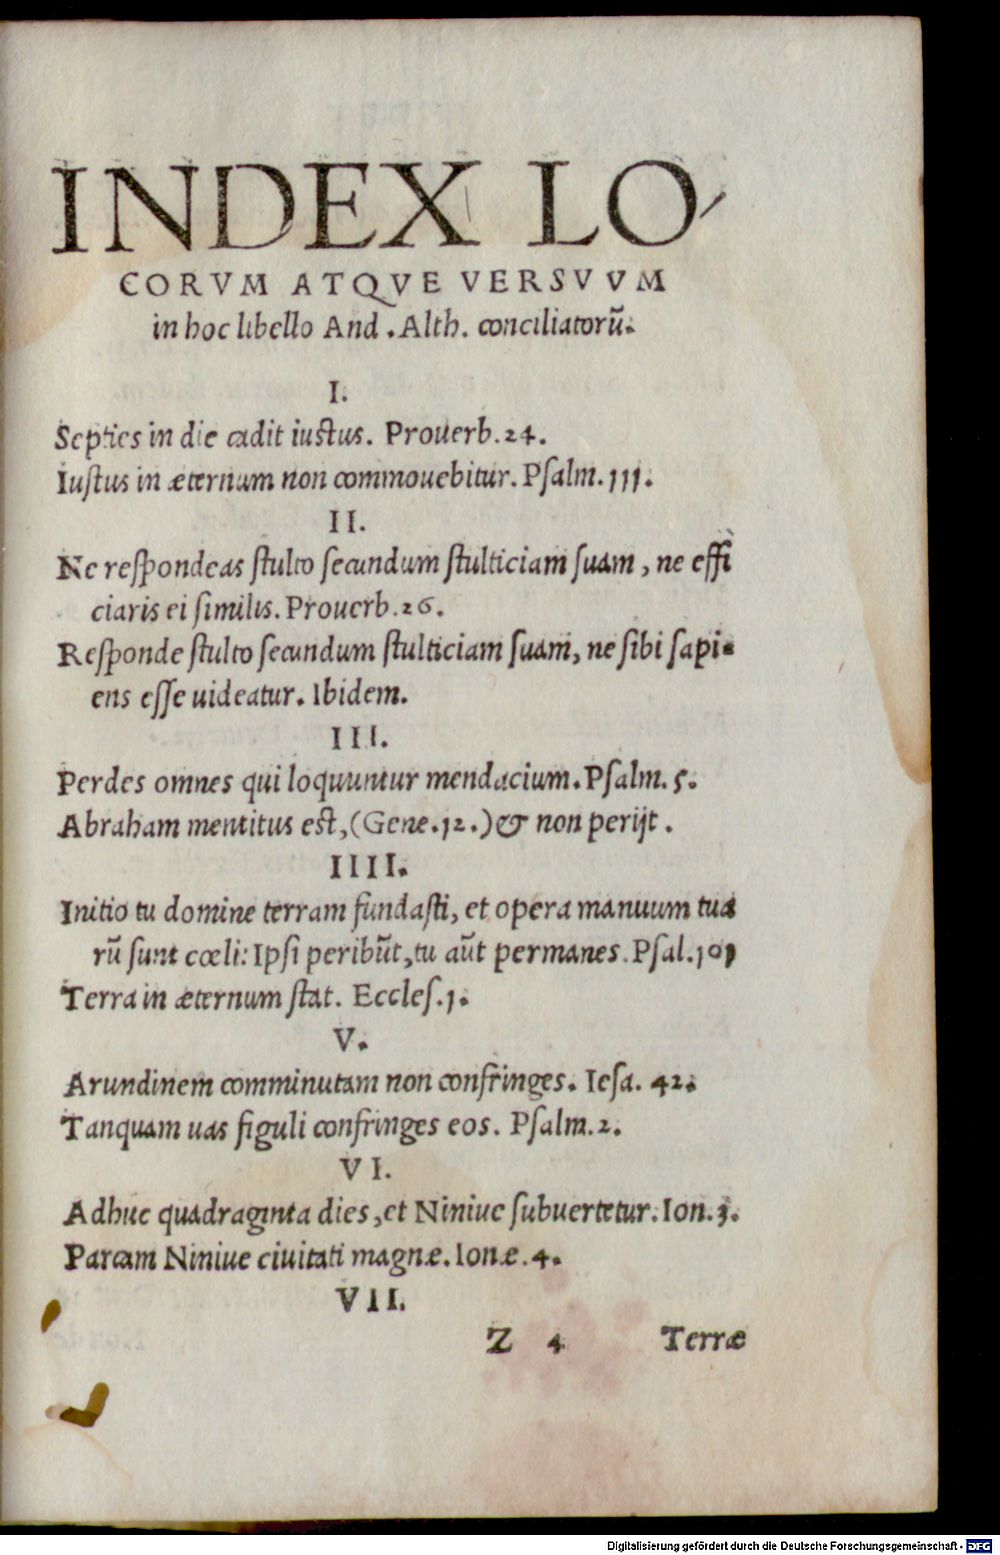 INDEX LO-
CORVM ATQVE VERSVVM
in hoc libello And. Alth. conciliatorũ.
I.
Septies in die cadit iustus. Prouerb. 24.
Iustus in æternum non commouebitur. Psalm. 111.
II.
Ne respondeas stulto secundum stulticiam suam, ne effi
ciaris ei similis. Prouerb. 26.
Responde stulto secundum stulticiam suam, ne sibi sapi-
ens esse uideatur. Ibidem.
III.
Perdes omnes qui loquuntur mendacium. Psalm. 5.
Abraham mentitus est, (Gene. 12.) & non perijt.
IIII.
Initio tu domine terram fundasti, et opera manuum tua
rũ sunt cœli: Ipsi peribũt, tu aũt permanes. Psal. 101
Terra in æternum stat. Eccles. 1.
V.
Arundinem comminutam non confringes. Iesa. 42.
Tanquam uas figuli confringes eos. Psalm. 2.
VI.
Adhuc quadraginta dies, et Niniue subuertetur. Ion. 3.
Parcam Niniue ciuitati magnæ. Ionæ. 4.
VII.
Z 4 Terræ
Digitalisierung gefördert durch die Deutsche Forschungsgemeinschaft - DFG